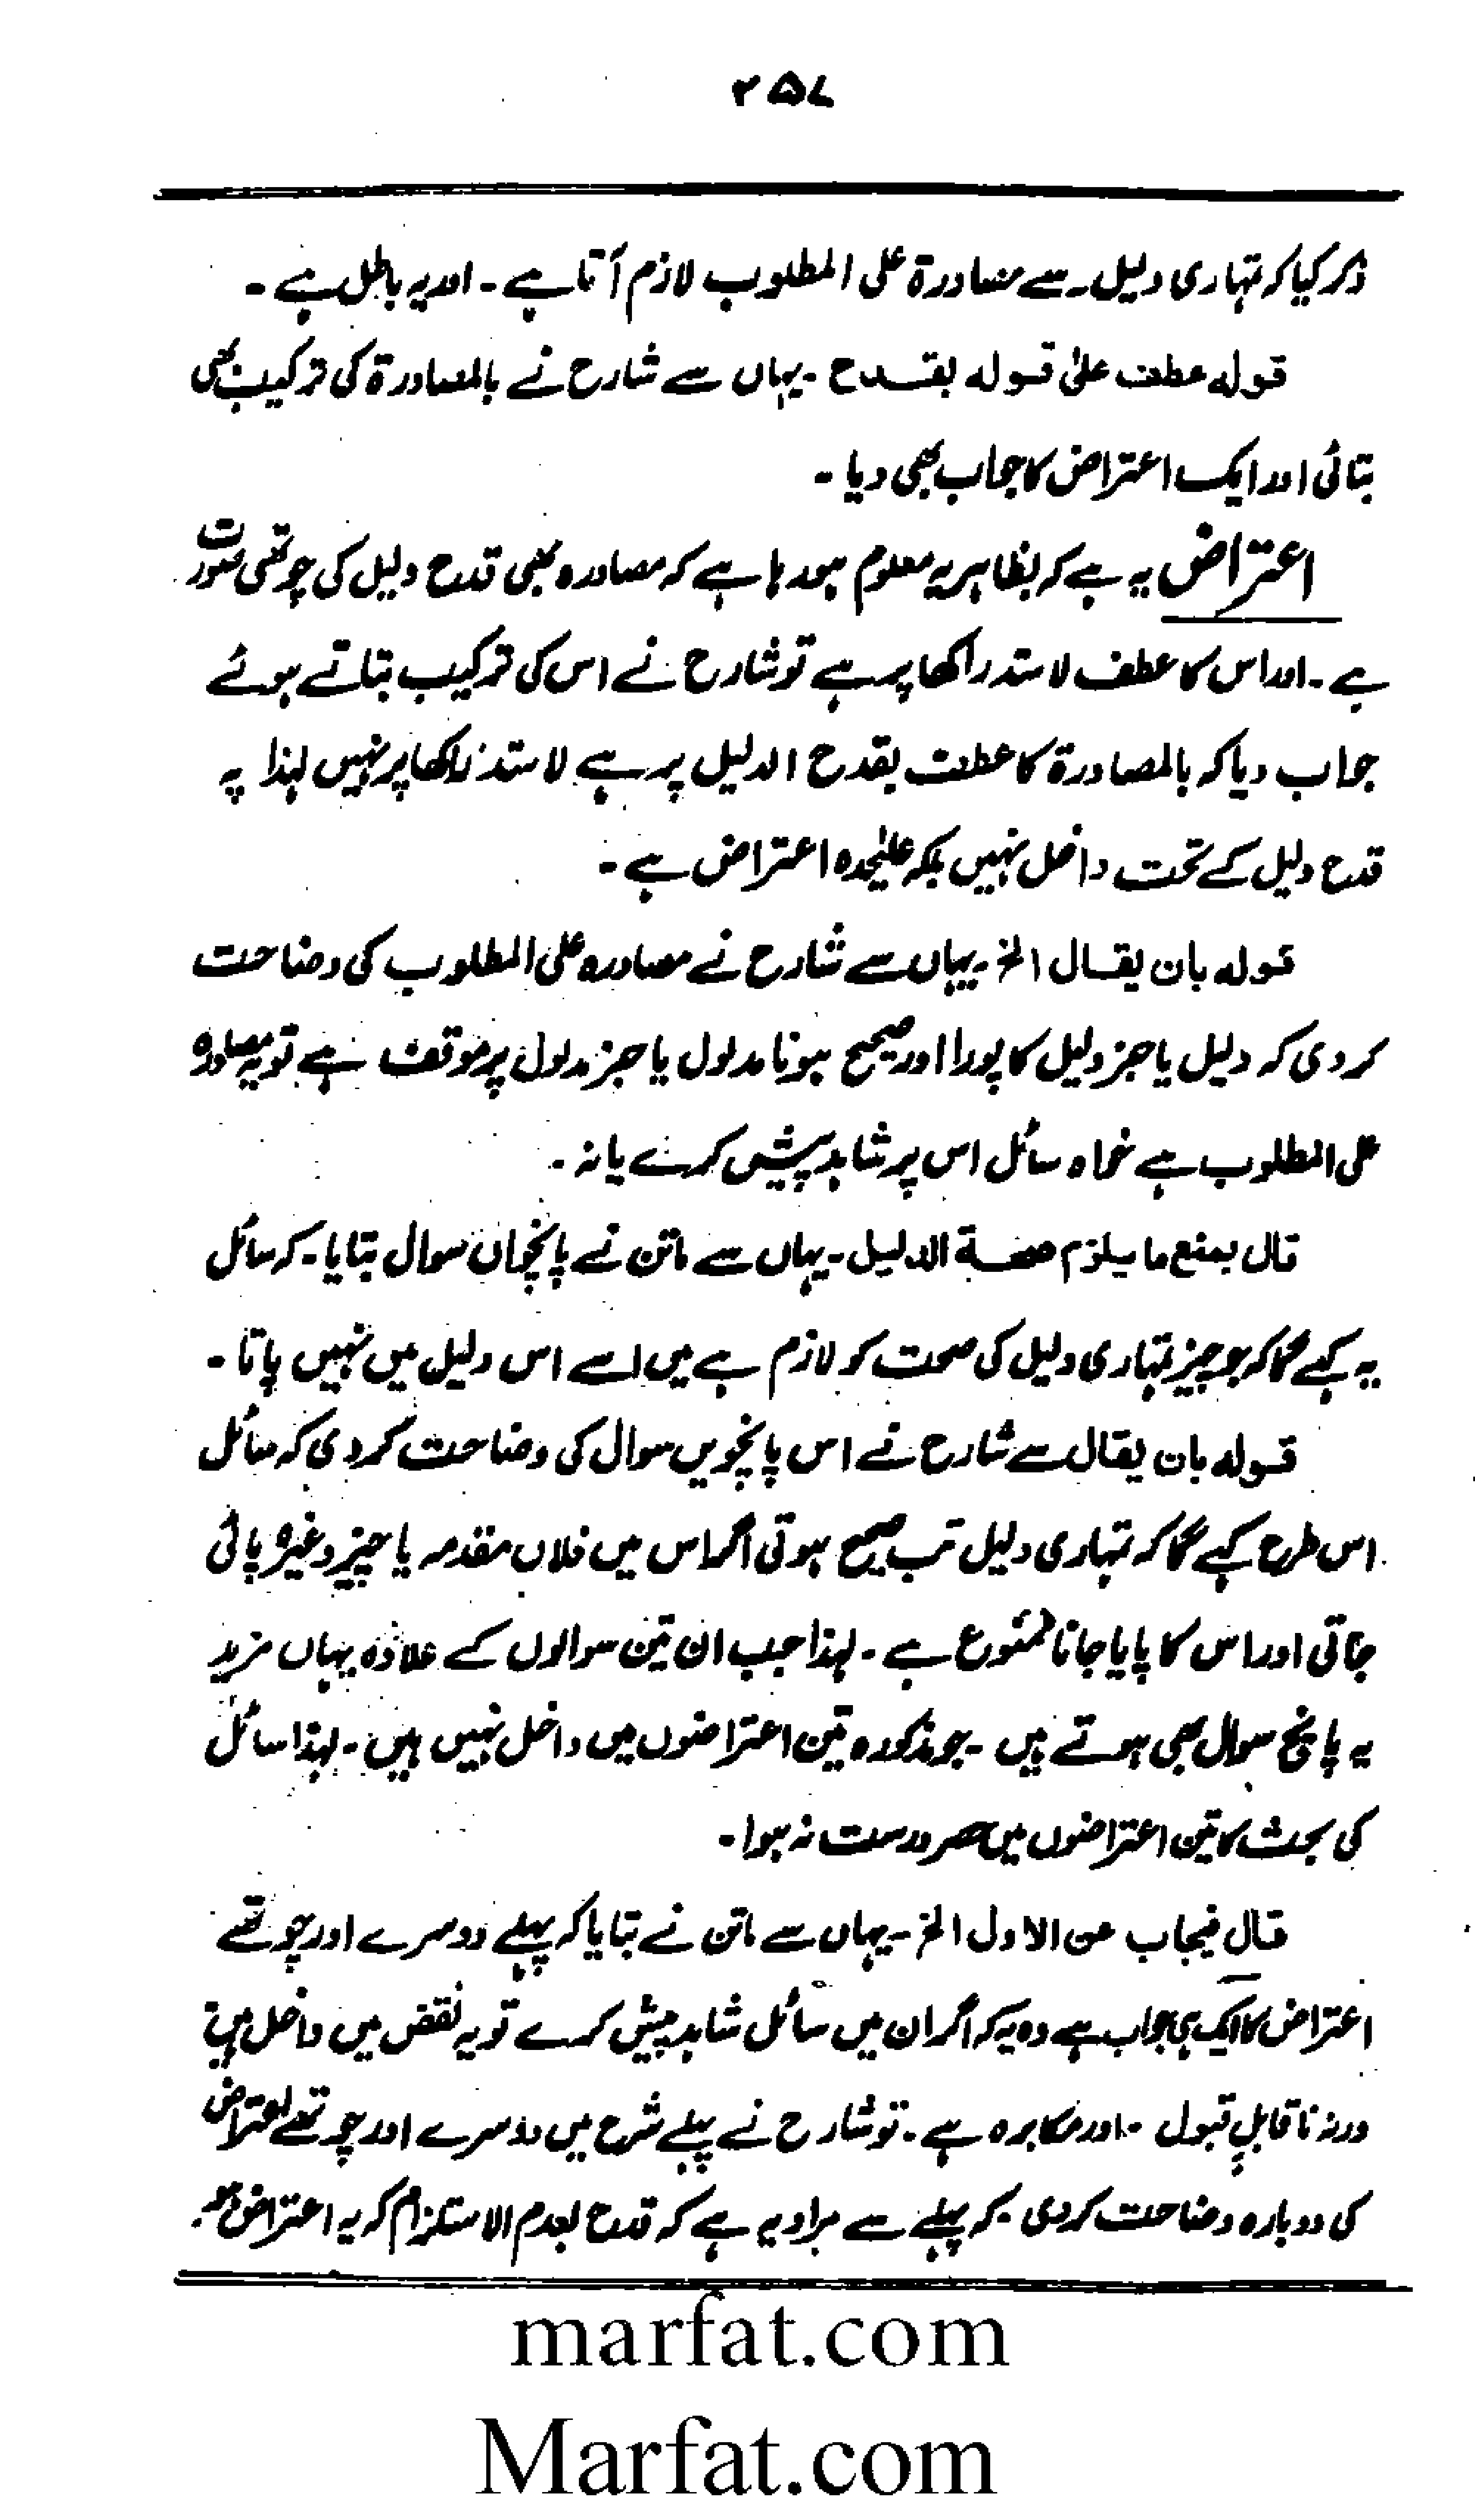 ۲۵۷
ذکر کیا کہ تمہاری دلیل سے مصادرۃ علی المطلوب لازم آتا ہے۔ اور یہ باطل ہے۔
قولہ عطف علیٰ قولہ بقدح۔ یہاں سے شارح نے بالمصادرۃ کی ترکیب بھی
بتائی اور ایک اعتراض کا جواب بھی دیا۔
اعتراض یہ ہے کہ بظاہر یہ معلوم ہو رہا ہے کہ مصادرہ بھی قدح دلیل کی چوتھی صورت
ہے۔ اور اس کا عطف لاستدراکھا پر ہے تو شارح نے اس کی ترکیب بتاتے ہوئے
جواب دیا کہ بالمصادرۃ کا عطف بقدح الدلیل پر ہے لاستدراکھا پر نہیں لہذا یہ
قدح دلیل کے تحت داخل نہیں بلکہ علیٰحدہ اعتراض ہے۔
قولہ بان یقال الخ۔ یہاں سے شارح نے مصادرہ علی المطلوب کی وضاحت
کر دی کہ دلیل یا جز دلیل کا پورا اور صحیح ہونا مدلول یا جز مدلول پر موقف ہے تو یہ مصادرہ
علی المطلوب ہے خواہ سائل اس پر شاہد پیش کرے یا نہ۔
قال بمنع ما یلزم صحۃ الدلیل۔ یہاں سے ماتن نے پانچواں سوال بتایا۔ کہ سائل
یہ کہے گا کہ جو چیز تمہاری دلیل کی صحت کو لازم ہے میں اسے اس دلیل میں نہیں پاتا۔
قولہ بان یقال سے شارح نے اس پانچویں سوال کی وضاحت کر دی کہ سائل
اس طرح کہے گا کہ تمہاری دلیل تب صحیح ہوتی اگر اس میں فلاں مقدمہ یا چیز وغیرہ پائی
جاتی اور اس کا پایا جانا ممنوع ہے۔ لہذا جب ان تین سوالوں کے علاوہ یہاں مزید
یہ پانچ سوال بھی ہوتے ہیں۔ جو مذکورہ تین اعتراضوں میں داخل نہیں ہیں۔ لہذا سائل
کی بحث کا تین اعتراضوں میں حصر درست نہ ہوا۔
قال فیجاب عن الاول الخ۔ یہاں سے ماتن نے بتایا کہ پہلے دوسرے اور چوتھے
اعتراض کا ایک ہی جواب ہے وہ یہ کہ اگر ان میں سائل شاہد پیش کرے تو یہ نقض میں داخل ہیں
ورنہ ناقابلِ قبول۔ اور مکابرہ ہے۔ تو شارح نے پہلے شرح میں دوسرے اور چوتھے اعتراض
کی دوبارہ وضاحت کر دی۔ کہ پہلے سے مراد یہ ہے کہ قدح بعدم الاستلزام کہ یہ اعتراض
marfat.com
Marfat.com